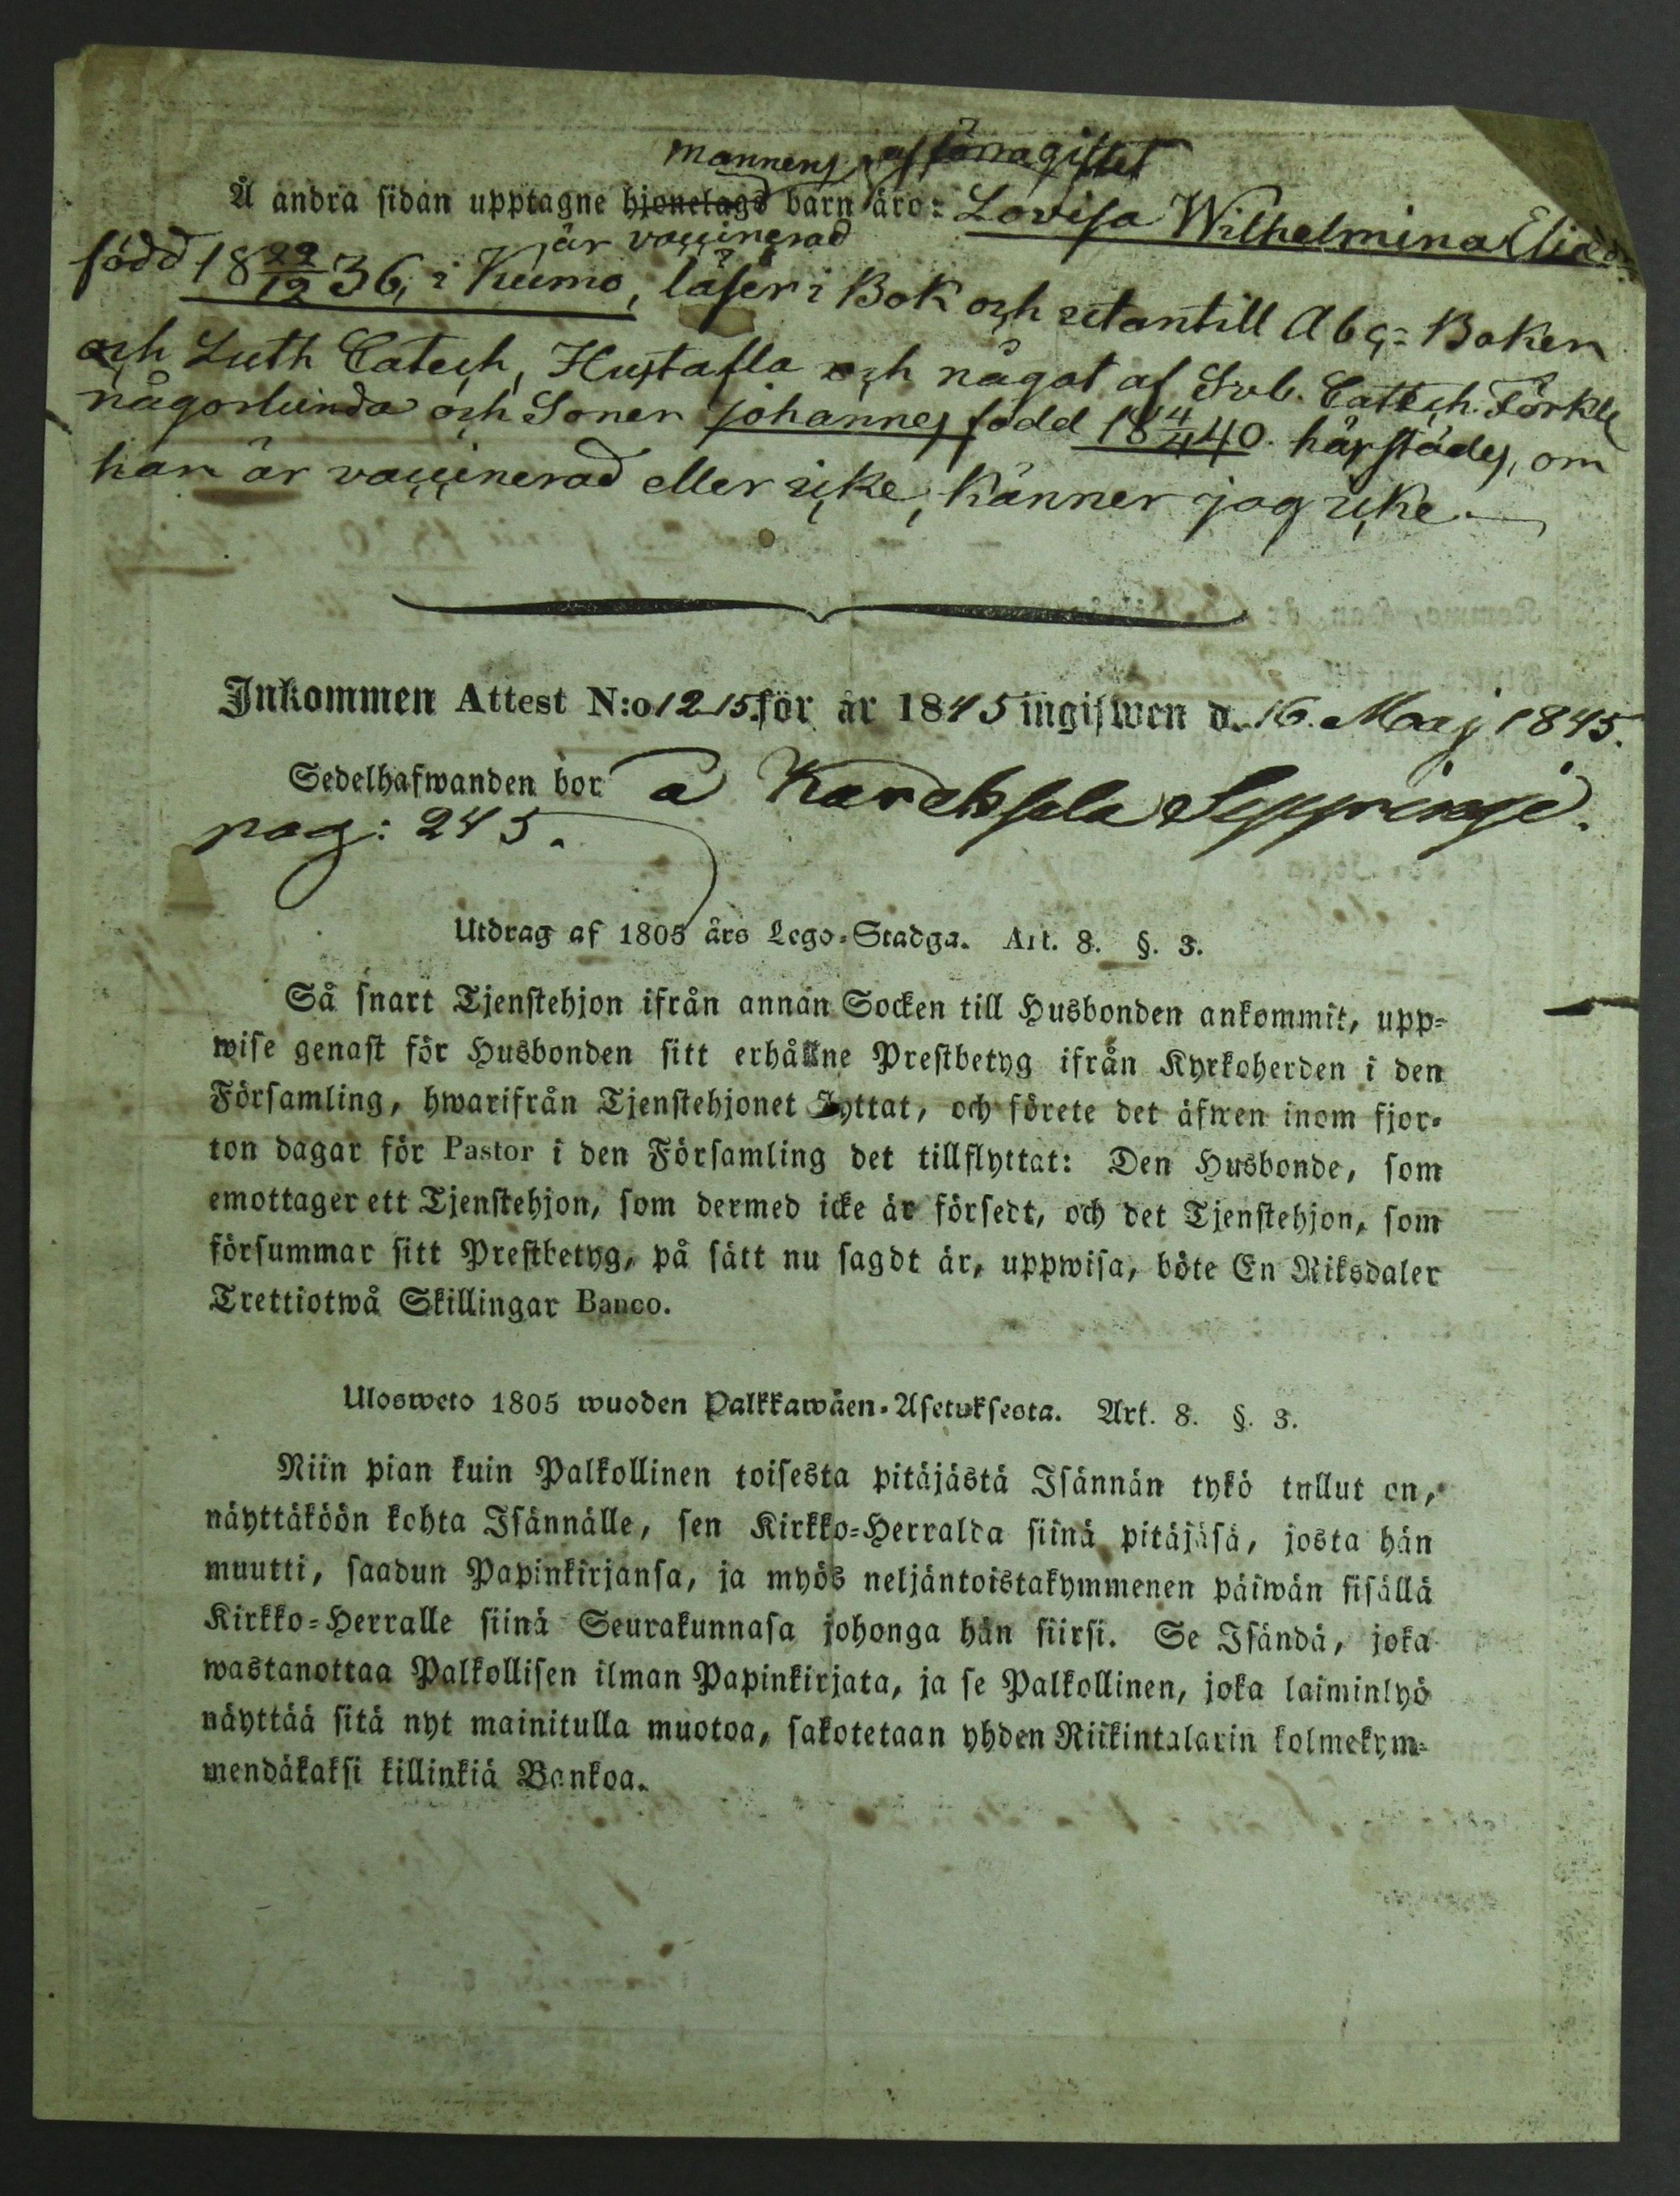 mannens af förra giftet
Å andra sidan upptagne hjonelags barn äro: Lovisa Wilhelmina
är vaccinerad
född 18 22/12 36, i Kumo, läser i Bok och utantill Abc-Boken
och Luth Catech, Hustafla och något af Svb. Catech. Förkl
någorlunda och Sonen Johannes född 18 4/4 40. härstädes, om
han är vaccinerad eller icke, känner jag icke.
Inkommen Attest N:o 1215. för år 1845 ingifwen d. 16. Maj 1845.
Sedelhafwanden bor å
pag: 245.
Utdrag af 1805 års Lego-Stadga. Art. 8. §. 3.
Så snart Tjenstehjon ifrån annan Socken till Husbonden ankommit, upp-
wise genast för Husbonden sitt erhållne Prestbetyg ifrån Kyrkoherden i den
Församling, hwarifrån Tjenstehjonet flyttat, och förete det äfwen inom fjor-
ton dagar för Pastor i den Församling det tillflyttat: Den Husbonde, som
emottager ett Tjenstehjon, som dermed icke är försedt, och det Tjenstehjon, som
försummar sitt Prestbetyg, på sätt nu sagdt är, uppwisa, böte En Riksdaler
Trettiotwå Skillingar Banco.
Ulosweto 1805 wuoden Palkkawäen-Asetuksesta. Art. 8. §. 3.
Niin pian kuin Palkollinen toisesta pitäjästä Isännän tykö tullut on,
näyttäköön kohta Isännälle, sen Kirkko-Herralda siinä pitäjäsä, josta hän
muutti, saadun Papinkirjansa, ja myös neljäntoistakymmenen päiwän sisällä
Kirkko-Herralle siinä Seurakunnasa johonga hän siirsi. Se Isändä, joka
wastanottaa Palkollisen ilman Papinkirjata, ja se Palkollinen, joka laiminlyö
näyttää sitä nyt mainitulla muotoa, sakotetaan yhden Riikintalarin kolmekym-
mendäkaksi killinkiä Bankoa.